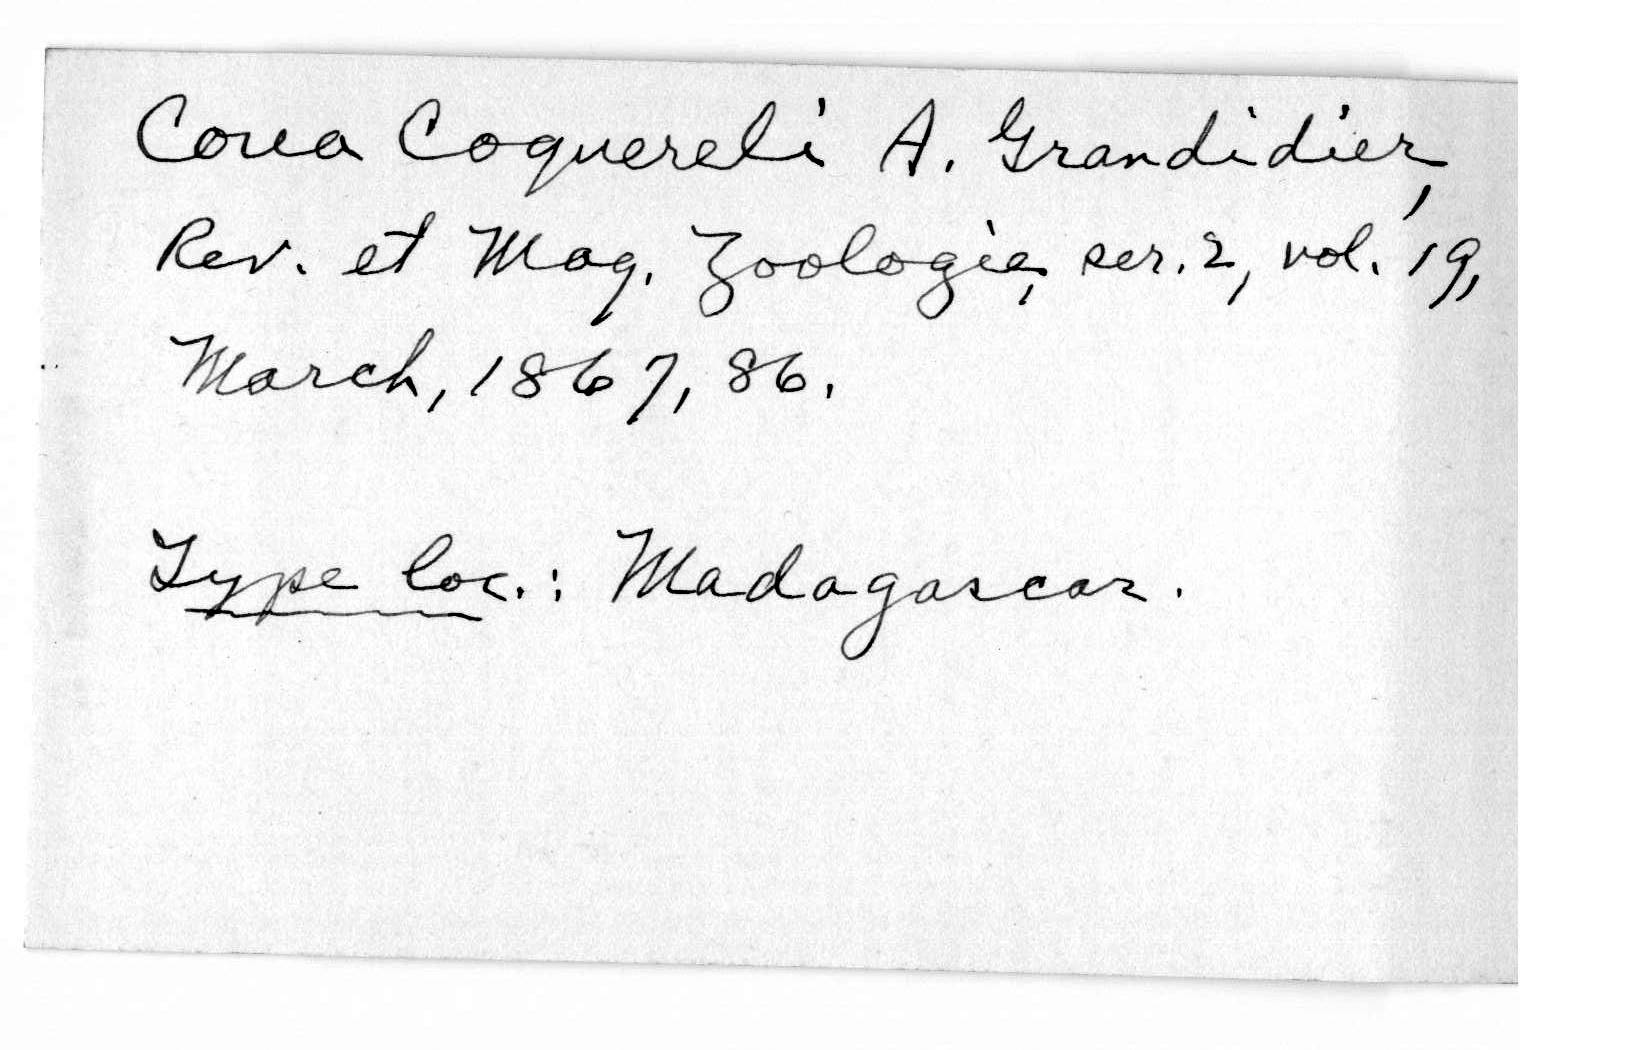 Coua Coquereli A. Grandidier,
Rev. et Mag. Zoologie, ser. 2, vol. 19,
March, 1867, 86.
Type loc.: Madagascar.